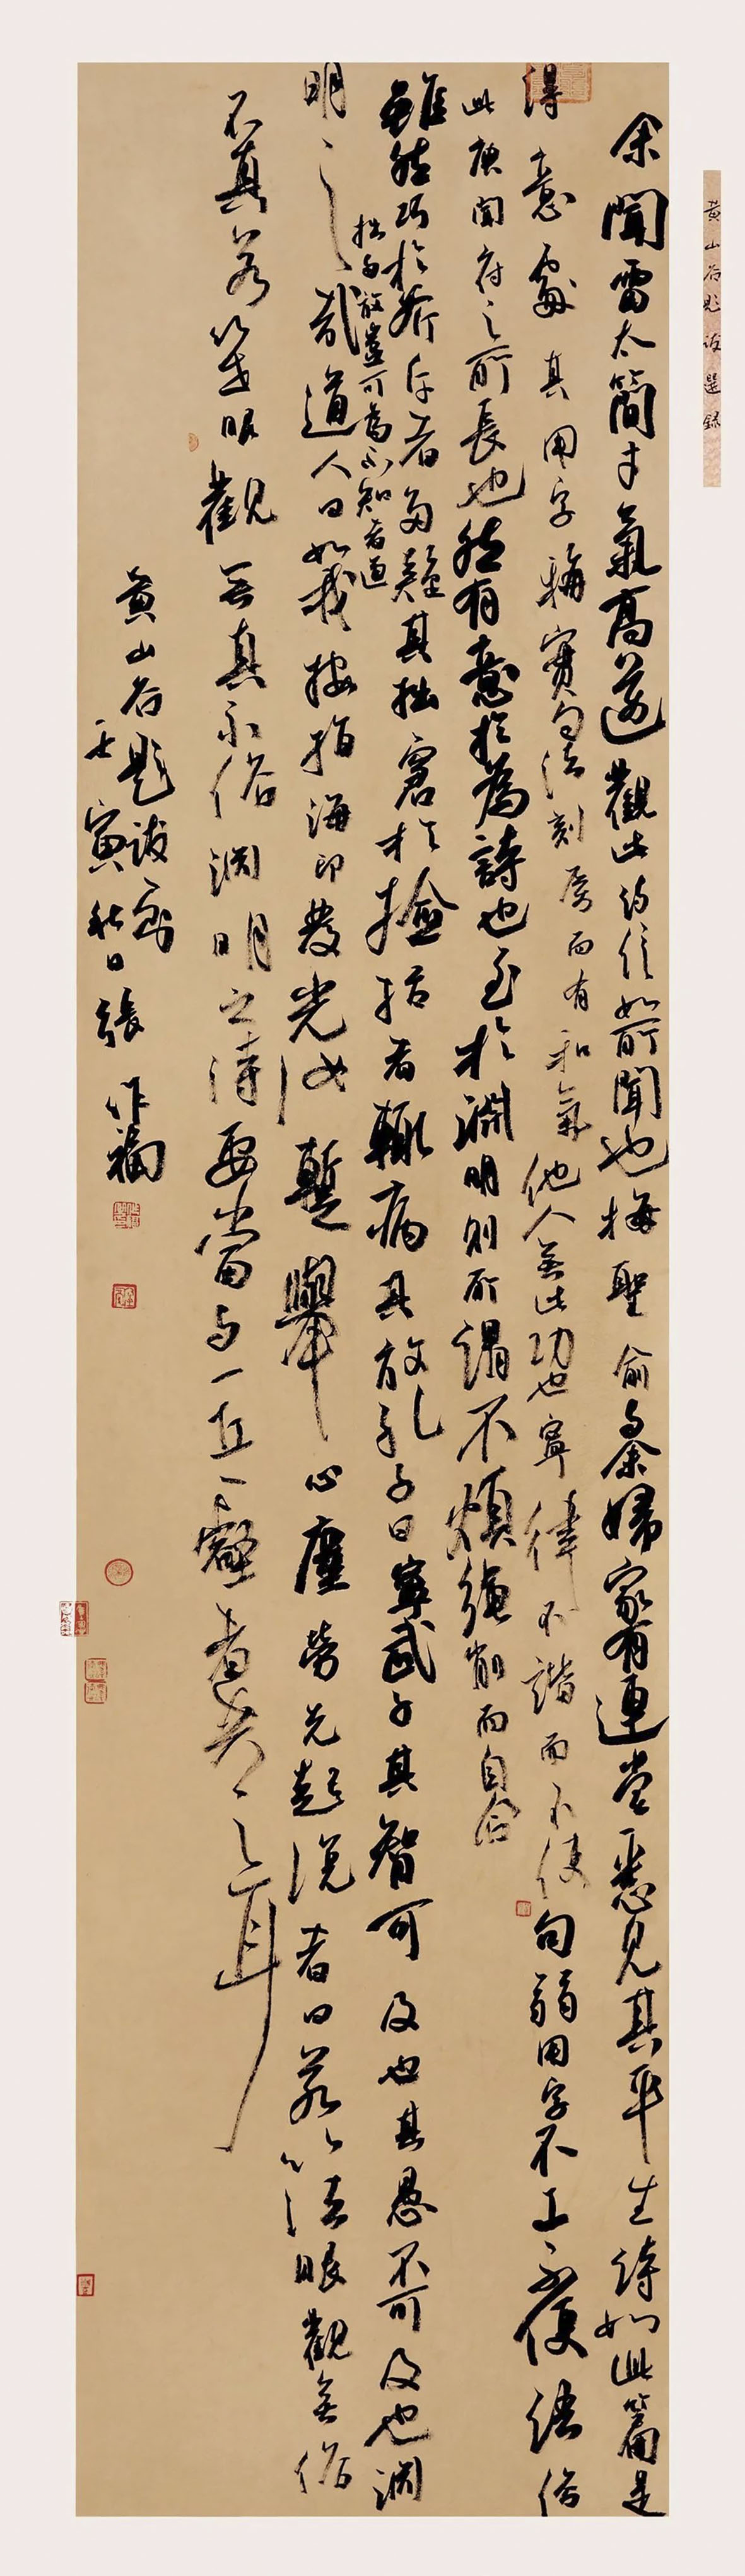 黄山谷题跋選錄
余聞雷太簡才氣高邁觀此詩信如所聞也梅聖俞與余婦家有連嘗悉見其平生詩如此篇是
得意處其用字穩實句法刻厲而有和氣他人無此功也寧律不諧而不使句弱用字不工不使語俗
此庾開府之所長也然有意於為詩也至於淵明則所謂不煩繩削而自合
雖然巧於斧斤者多疑其拙窘於檢括者輒病其放孔子曰寧武子其智可及也其愚不可及也淵
明之拙與放豈可為不知者道哉道人曰如我按指海印發光汝暫舉心塵勞先起說者曰若以法眼觀無俗
不真若以世眼觀無真不俗淵明之詩要當與一丘一壑者共之耳
黄山谷題跋句
壬寅秋日張作福